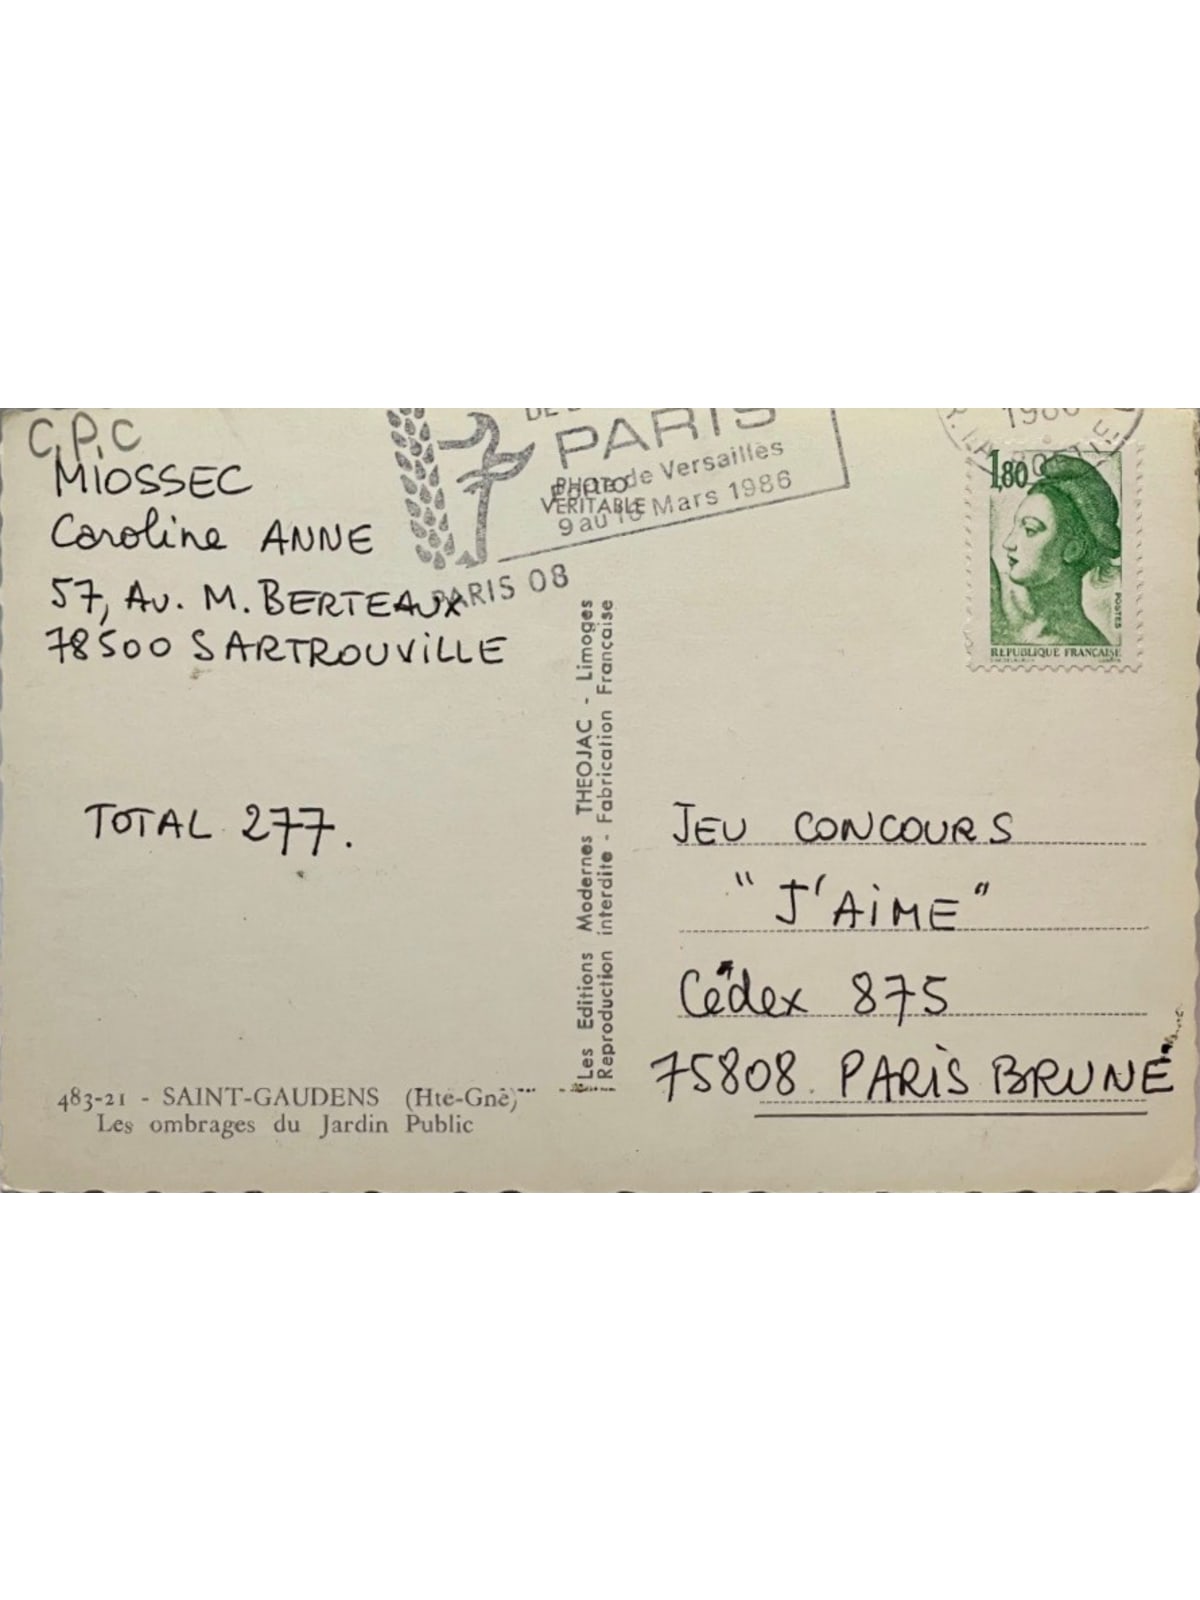 C.P.C
MIOSSEC
Caroline ANNE
57, Av. M. BERTEAUX
78500 SARTROUVILLE
TOTAL 277.
483-21 - SAINT-GAUDENS (Hte-Gne)
Les ombrages du Jardin Public
PARIS
Porte de Versailles
9 au 16 Mars 1986
PARIS 08
PHOTO
VERITABLE
Les Editions Modernes THEOJAC - Limoges
Reproduction interdite - Fabrication Française
1986
1,80
POSTES
REPUBLIQUE FRANÇAISE
JEU CONCOURS
"J'AIME"
Cédex 875
75808 PARIS BRUNE